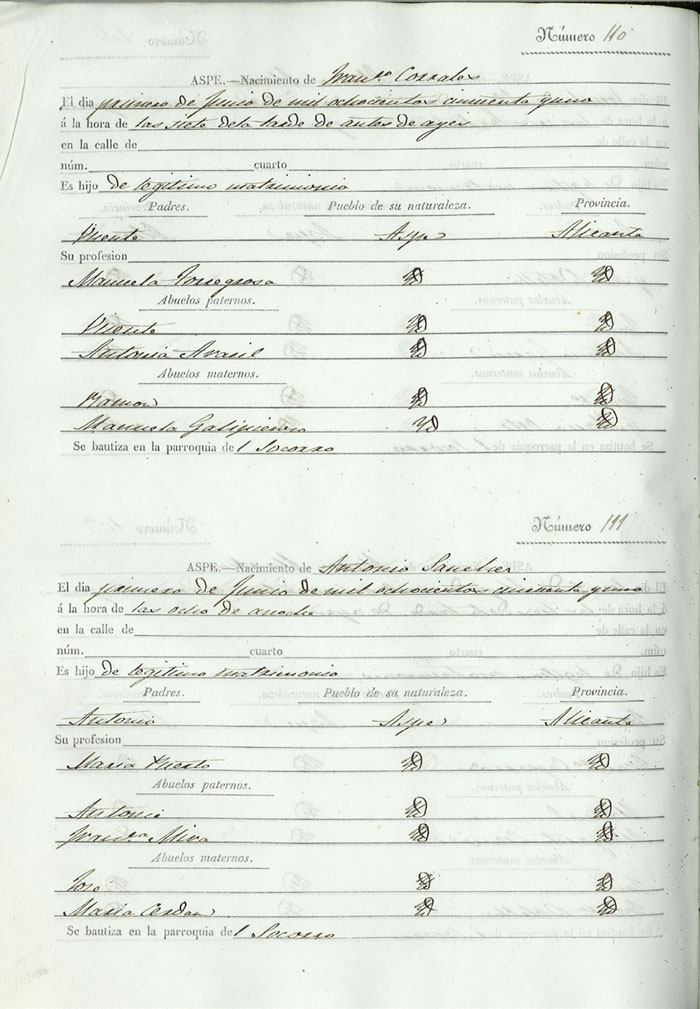 Número 110
ASPE.—Nacimiento de Franco Corrales
El dia primero de Junio de mil ochocientos cincuenta y uno
á la hora de las siete de la tarde de antes de ayer
en la calle de
núm. cuarto
Es hijo de legitimo matrimonio
Padres. Pueblo de su naturaleza. Provincia.
Vicente Aspe Alicante
Su profesion
Manuela Torregrosa
Abuelos paternos.
Vicente
Antonia
Abuelos maternos.
Ramon
Manuela Galipienso
Se bautiza en la parroquia del Socorro
Número 111
ASPE.—Nacimiento de Antonio Sanchez
El dia primero de Junio de mil ochocientos cincuenta y uno
á la hora de las ocho de anoche
en la calle de
núm. cuarto
Es hijo de legitimo matrimonio
Padres. Pueblo de su naturaleza. Provincia.
Antonio Aspe Alicante
Su profesion
Maria
Abuelos paternos.
Antonio
Franca Mira
Abuelos maternos.
Jose
Maria Cerdan
Se bautiza en la parroquia del Socorro